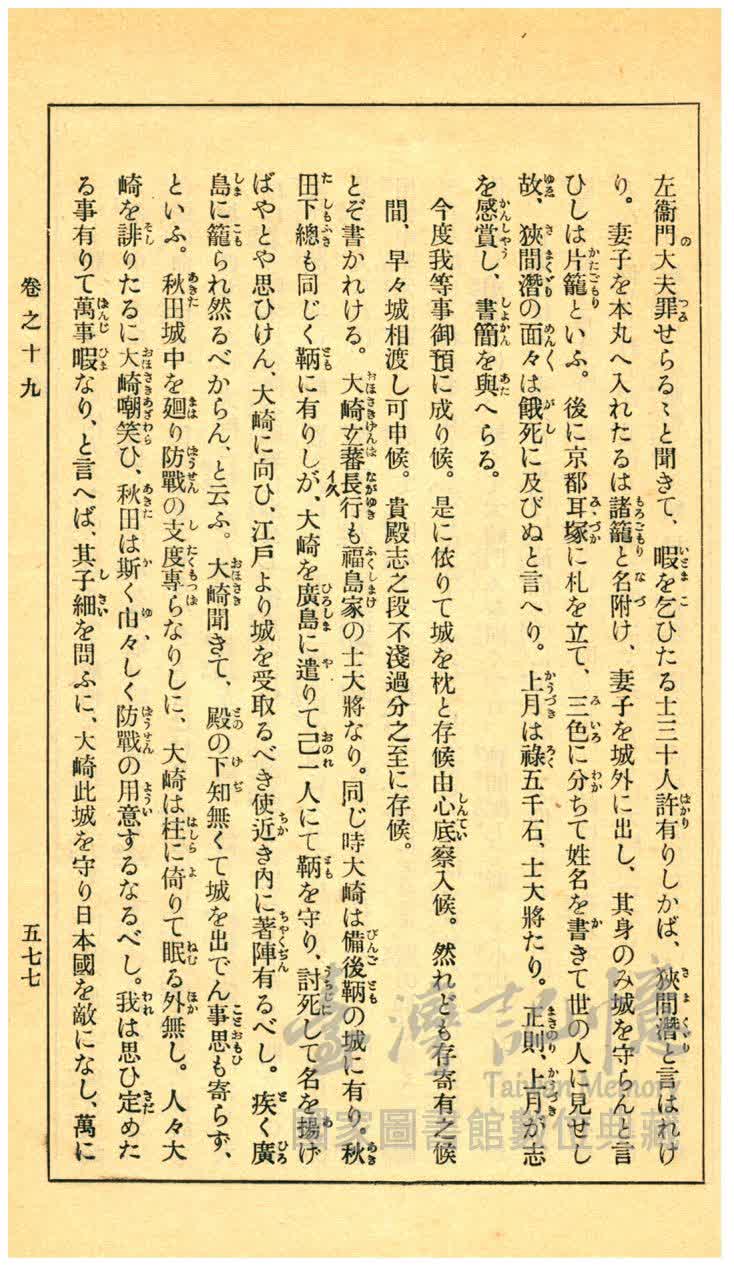 左衞門大夫罪せらるゝと聞きて、暇を乞ひたる士三十人許有りしかば、狹間潛と言はれけ
り。妻子を本丸へ入れたるは諸籠と名附け、妻子を城外に出し、其身のみ城を守らんと言
ひしは片籠といふ。後に京都耳塚に札を立て、三色に分ちて姓名を書きて世の人に見せし
故、狹間潛の面々は餓死に及びぬと言へり。上月は祿五千石、士大將たり。正則、上月が志
を感賞し、書簡を與へらる。
今度我等事御預に成り候。是に依りて城を枕と存候由心底察入候。然れども存寄有之候
間、早々城相渡し可申候。貴殿志之段不淺過分之至に存候。
とぞ書かれける。大崎玄蕃長行も福島家の士大將なり。同じ時大崎は備後鞆の城に有り。秋
田下總も同じく鞆に有りしが、大崎を廣島に遣りて己一人にて鞆を守り、討死して名を揚げ
ばやとや思ひけん、大崎に向ひ、江戸より城を受取るべき使近き内に著陣有るべし。疾く廣
島に籠られ然るべからん、と云ふ。大崎聞きて、殿の下知無くて城を出でん事思も寄らず、
といふ。秋田城中を廻り防戰の支度專らなりしに、大崎は柱に倚りて眠る外無し。人々大
崎を誹りたるに大崎嘲笑ひ、秋田は斯く由々しく防戰の用意するなるべし。我は思ひ定めた
る事有りて萬事暇なり、と言へば、其子細を問ふに、大崎此城を守り日本國を敵になし、萬に
卷之十九
五七七
臺灣記憶
Taiwan Memory
國家圖書館數位典藏